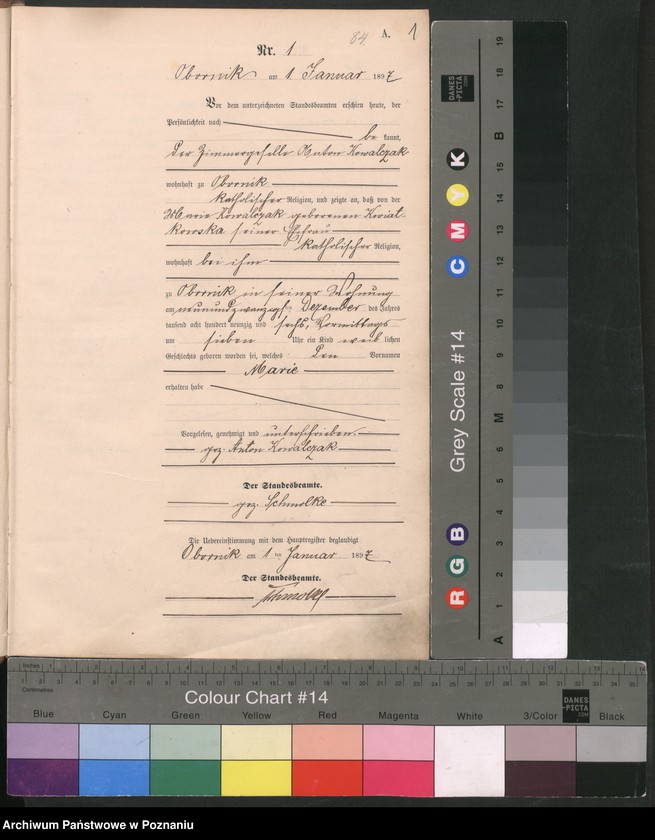 84 A. 1
Nr. 1
Obornik am 1 Januar 1897
Vor dem unterzeichneten Standesbeamten erschien heute, der
Persönlichkeit nach
be kannt,
der Zimmergeselle Anton Kowalczak
wohnhaft zu Obornik
katholischer Religion, und zeigte an, daß von der
Marie Kowalczak geborenen Kwiat-
kowska seiner Ehefrau
katholischer Religion,
wohnhaft bei ihm
zu Obornik in seiner Wohnung
am neunundzwanzigst Dezember des Jahres
tausend acht hundert neunzig und sechs, Vormittags
um sieben Uhr ein Kind weib lichen
Geschlechts geboren worden sei, welches den Vornamen
Marie
erhalten habe
Vorgelesen, genehmigt und unterschrieben.
gez. Anton Kowalczak
Der Standesbeamte.
gez. Schmolke
Die Uebereinstimmung mit dem Hauptregister beglaubigt
Obornik am 1 ten Januar 1897
Der Standesbeamte.
Schmolke
DANES
-PICTA
.COM
Grey Scale #14
C M Y K
R G B
A 1 2 3 4 5 6 M 8 9 10 11 12 13 14 15 B 17 18 19
Inches 1 2 3 4 5 6 7 8 9 10 11 12 13 14
Centimetres 1 2 3 4 5 6 7 8 9 10 11 12 13 14 15 16 17 18 19 20 21 22 23 24 25 26 27 28 29 30 31 32 33 34 35
Colour Chart #14
DANES
-PICTA
.COM
Blue Cyan Green Yellow Red Magenta White 3/Color Black
Archiwum Państwowe w Poznaniu